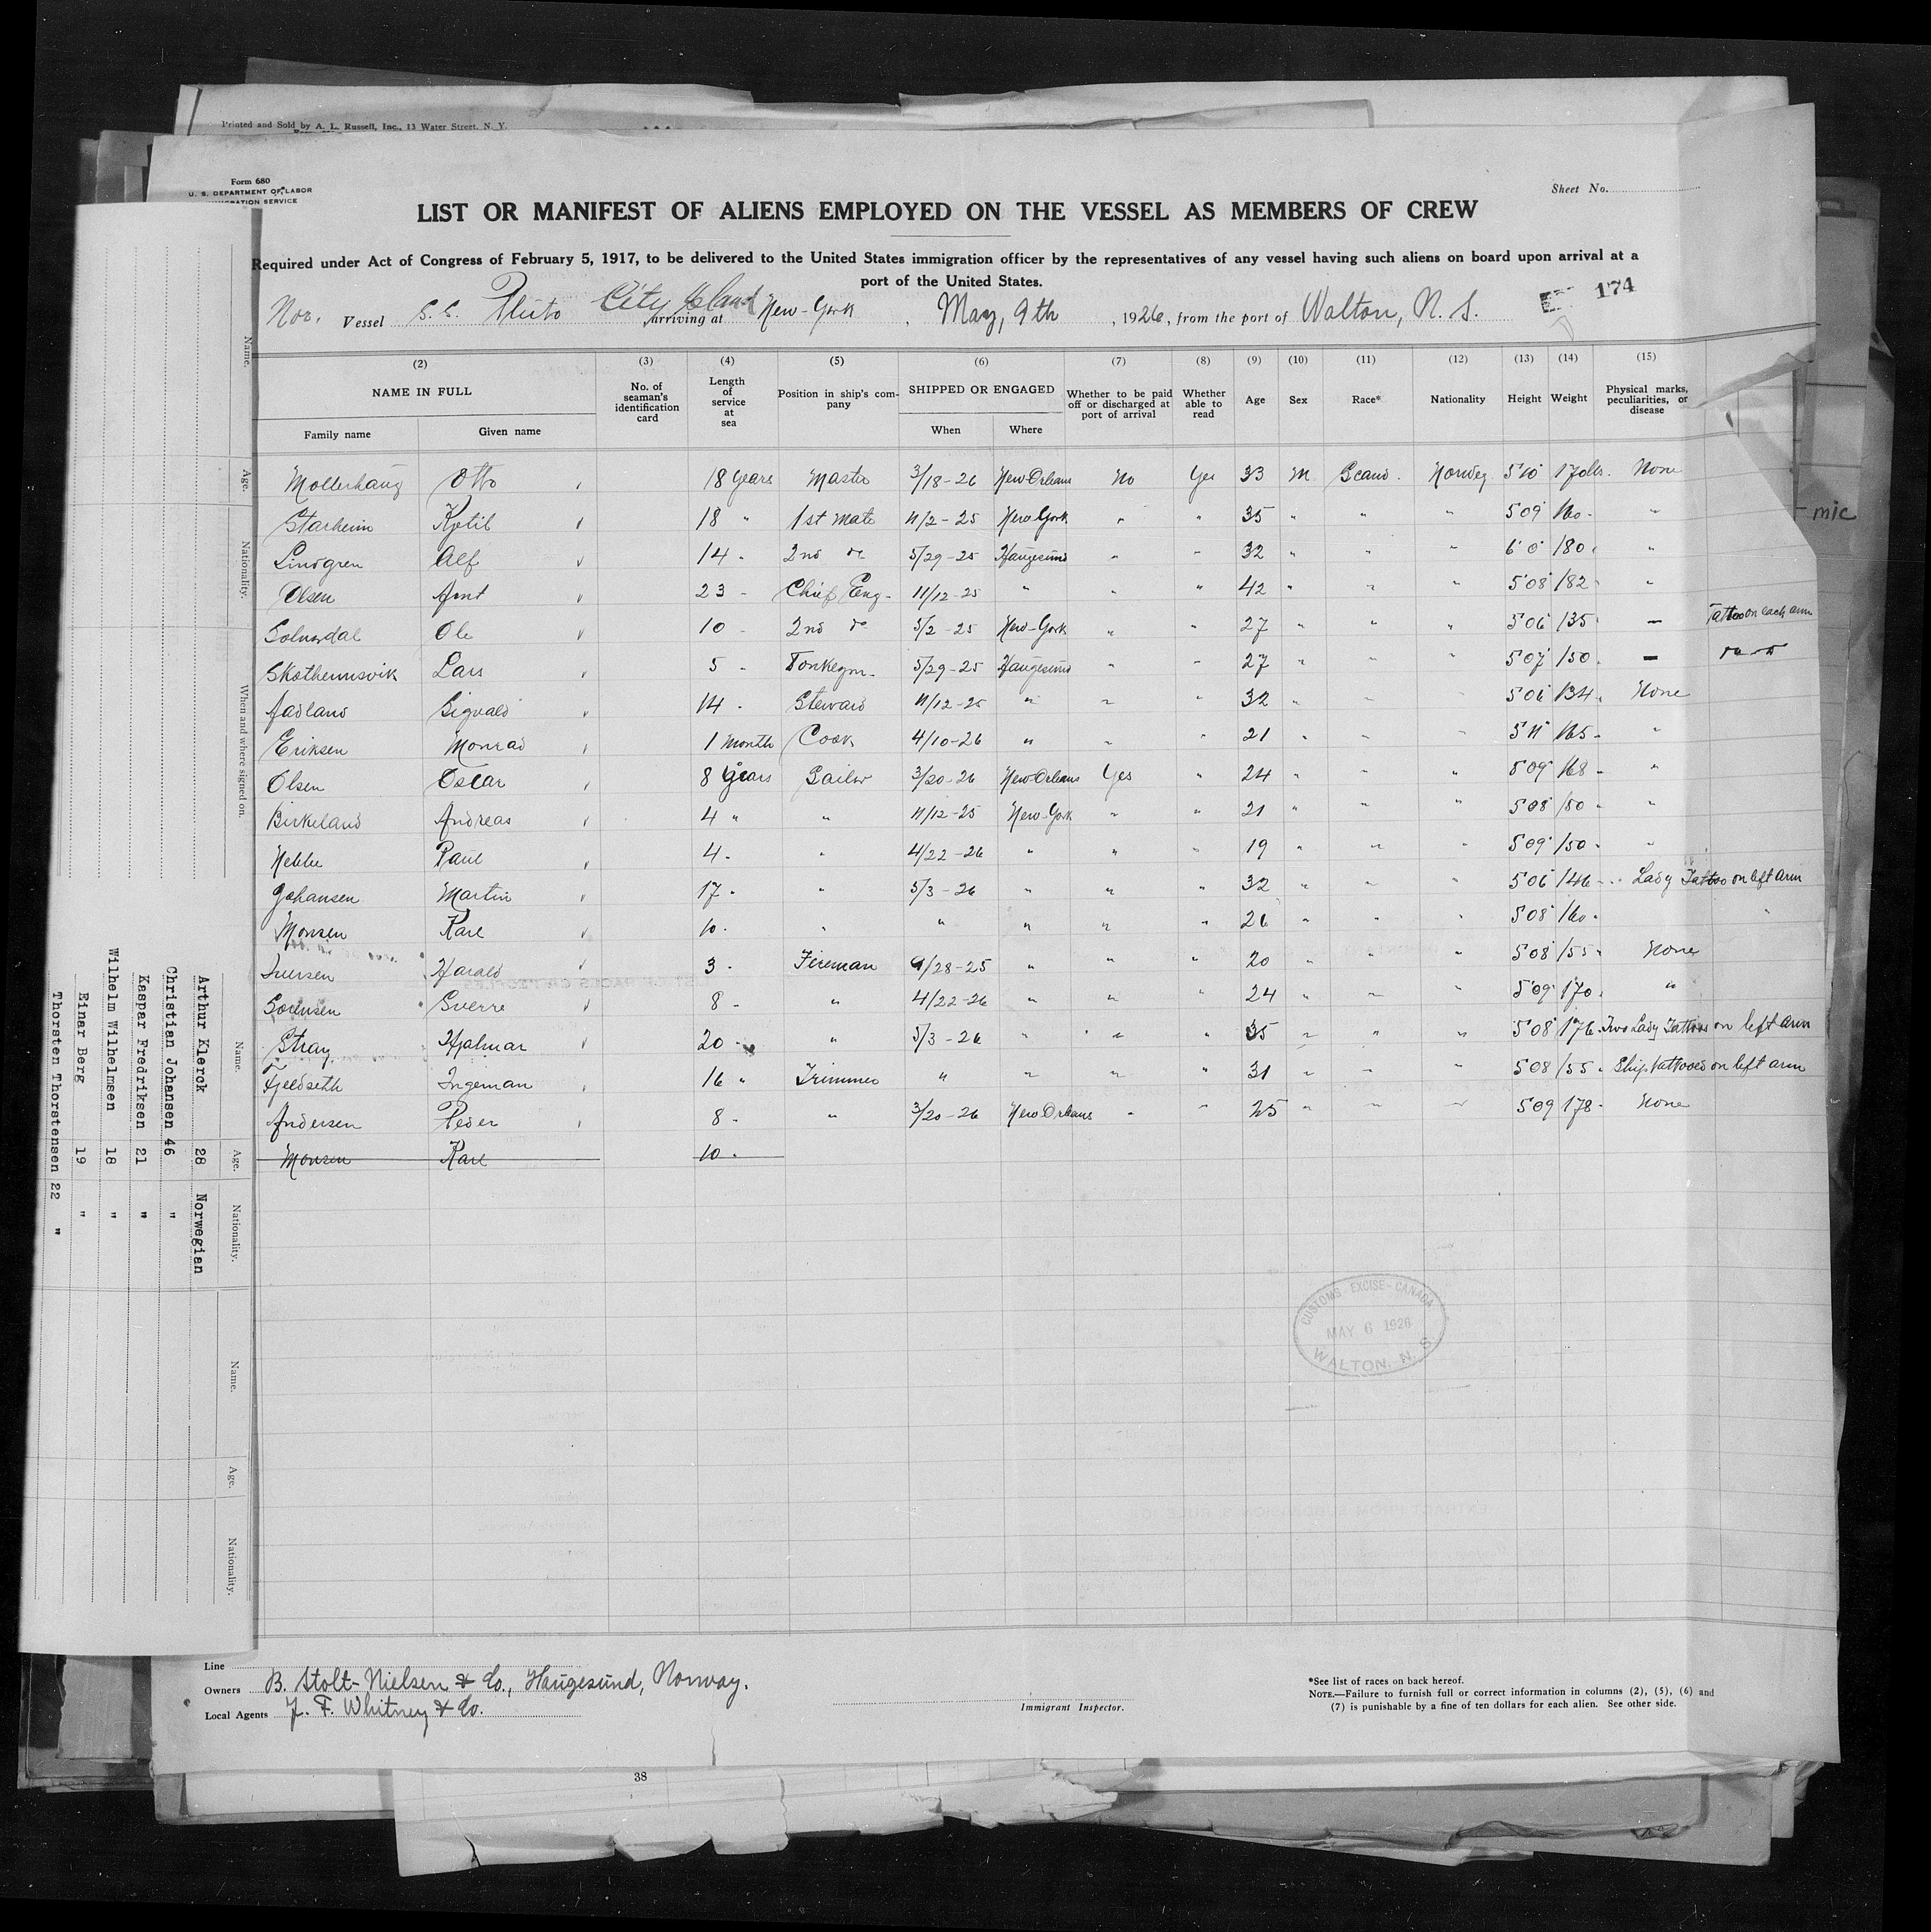 Printed and Sold by A. L. Russell, Inc., 13 Water Street, N. Y.
Form 680
U. S. DEPARTMENT OF LABOR
IMMIGRATION SERVICE
Sheet No.
LIST OR MANIFEST OF ALIENS EMPLOYED ON THE VESSEL AS MEMBERS OF CREW
Required under Act of Congress of February 5, 1917, to be delivered to the United States immigration officer by the representatives of any vessel having such aliens on board upon arrival at a
port of the United States.
174
Nor. Vessel S.S. Pluto arriving at City Island New-York, May, 9th, 1926, from the port of Walton, N. S.
(2) (3) (4) (5) (6) (7) (8) (9) (10) (11) (12) (13) (14) (15)
NAME IN FULL No. of seaman's identification card Length of service at sea Position in ship's company SHIPPED OR ENGAGED Whether to be paid off or discharged at port of arrival Whether able to read Age Sex Race* Nationality Height Weight Physical marks, peculiarities, or disease
Family name Given name When Where
Mollerhaug Otto 18 years Master 3/18-26 New Orleans No Yes 33 M Scand. Norweg 5'10 170lbs. None
Starheim Kjetil 18 " 1st mate 11/2-25 New York " " 35 " " " 5 09 160 "
Lindgren Alf 14 " 2nd do 5/29-25 Haugesund " " 32 " " " 6 0 180 "
Olsen Arnt 23 " Chief Eng. 11/12-25 " " " 42 " " " 5 08 182 "
Ole 10 " 2nd do 5/2-25 New-York " " 27 " " " 5 06 135 — Tattoo on each arm
Lars 5 " Donkeym. 5/29-25 Haugesund " " 27 " " " 5 07 150 — do
Aadland Sigvald 14 " Steward 11/12-25 " " " 32 " " " 5 06 134 None
Eriksen Monrad 1 month Cook 4/10-26 " " " 21 " " " 5 11 165 "
Olsen Oscar 8 years Sailor 3/20-26 New Orleans Yes " 24 " " " 5 09 168 "
Birkeland Andreas 4 " " 11/12-25 New-York " " 21 " " " 5 08 150 "
Paul 4 " " 4/22-26 " " " 19 " " " 5 09 150 "
Johansen Martin 17 " " 5/3-26 " " " 32 " " " 5 06 146 Lady Tattoo on left arm
Monsen Karl 10 " " " " " " 26 " " " 5 08 160 "
Iversen Harald 3 " Fireman 9/28-25 " " " 20 " " " 5 08 155 None
Sorensen Sverre 8 " " 4/22-26 " " " 24 " " " 5 09 170 "
Stray Hjalmar 20 " " 5/3-26 " " " 35 " " " 5 08 176 Two Lady Tattoos on left arm
Fjeldseth Ingeman 16 " Trimmer " " " " 31 " " " 5 08 155 Ship tattooed on left arm
Andersen Peder 8 " " 3/20-26 New Orleans " " 25 " " " 5 09 178 None
Monsen Karl 10 "
CUSTOMS EXCISE - CANADA
MAY 6 1926
WALTON, N. S.
mic
Name. Age. Nationality. When and where signed on.
Name. Age. Nationality.
Name. Age. Nationality.
Arthur Klerck 28 Norwegian
Christian Johansen 46 "
Kaspar Fredriksen 21 "
Wilhelm Wilhelmsen 18 "
Einar Berg 19 "
Thorsten Thorstensen 22 "
Line
Owners B. Stolt-Nielsen & Co., Haugesund, Norway.
Local Agents J. F. Whitney & Co.
Immigrant Inspector.
*See list of races on back hereof.
NOTE.—Failure to furnish full or correct information in columns (2), (5), (6) and
(7) is punishable by a fine of ten dollars for each alien. See other side.
38